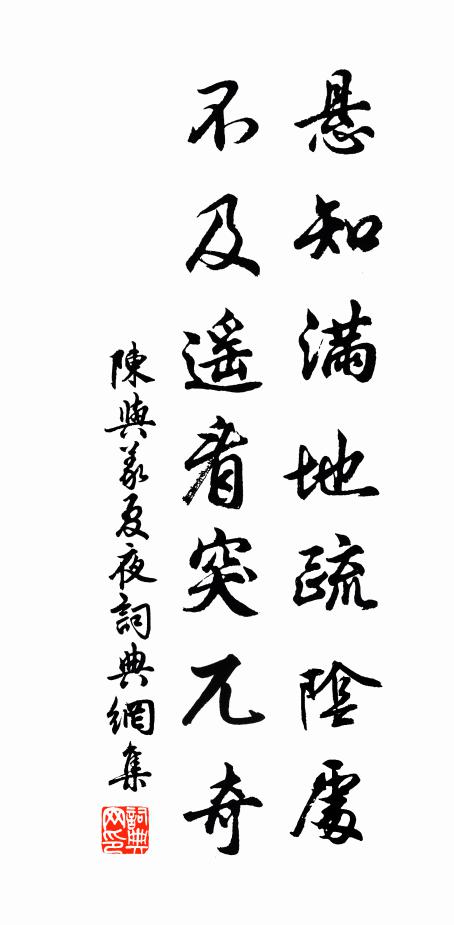 悬知满地疏阴處
不及遥看突兀奇
陳與義夏夜詞典網集
詞典网印